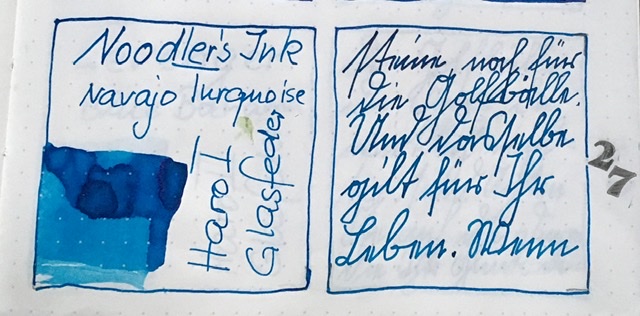 Noodler's Ink
Navajo Turquoise
HaroT
Glasfeder
Steine noch für
die Golfbälle.
Und dasselbe
gilt für Ihr
Leben. Wenn
27